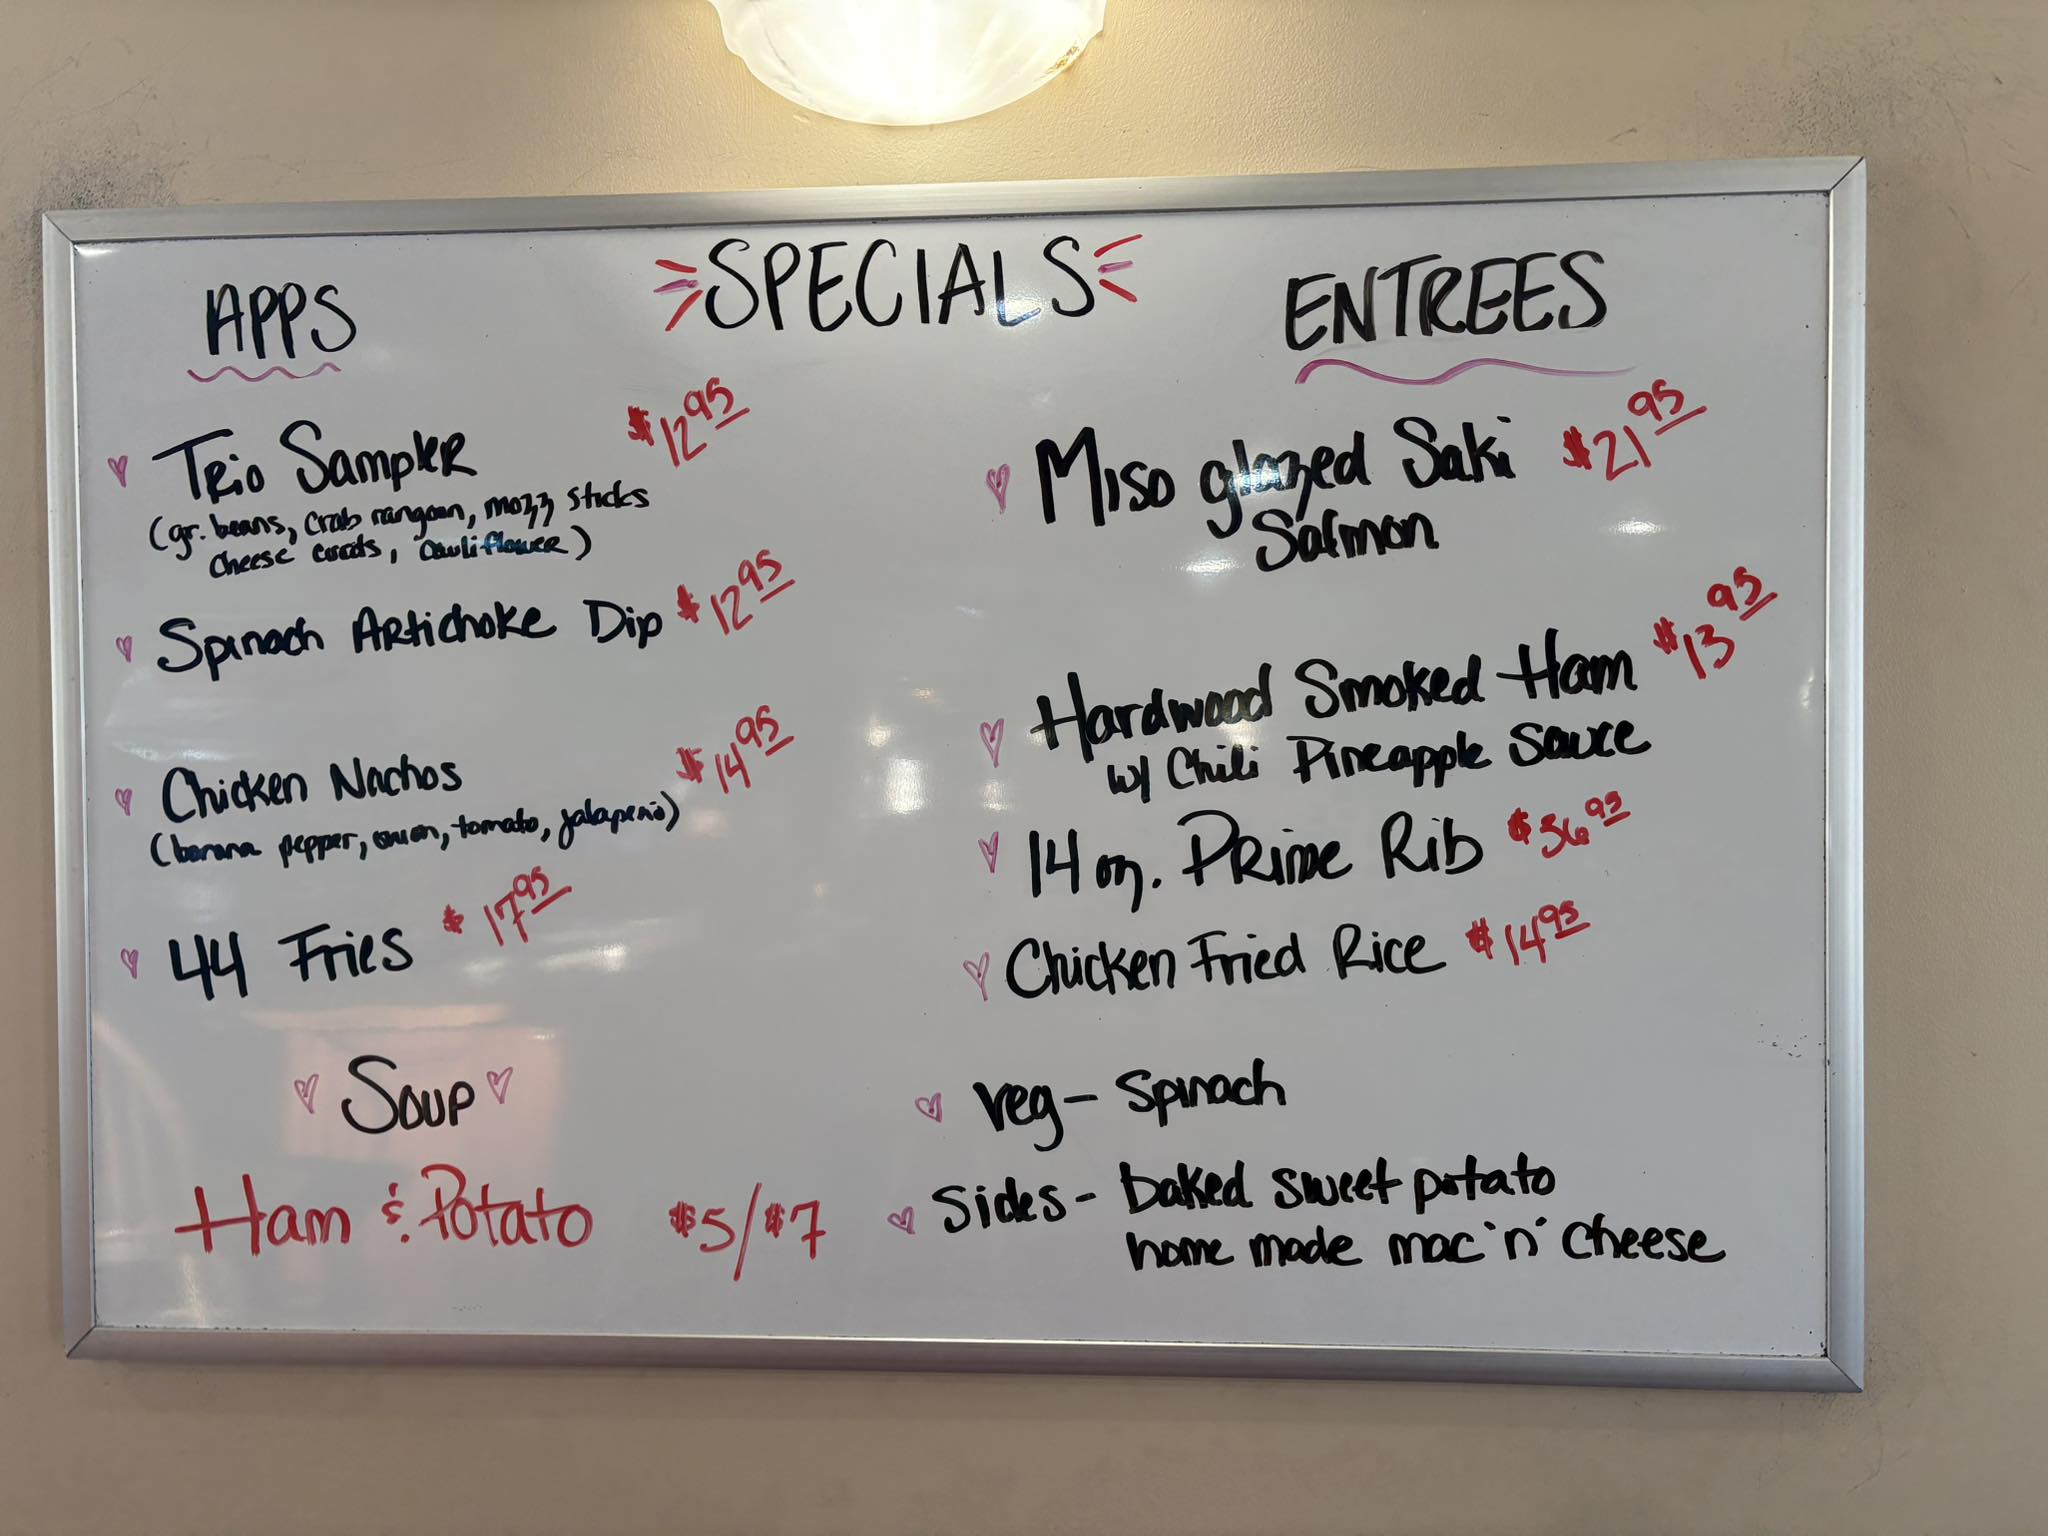 SPECIALS
APPS
Trio Sampler $12.95
(gr. beans, crab rangoon, mozz sticks
cheese curds, cauliflower)
Spinach Artichoke Dip $12.95
Chicken Nachos $14.95
(banana pepper, onion, tomato, jalapeño)
44 Fries $17.95
Soup
Ham & Potato $5/$7
ENTREES
Miso glazed Saki $21.95
Salmon
Hardwood Smoked Ham $13.95
w/ Chili Pineapple Sauce
14 oz. Prime Rib
Chicken Fried Rice $14.95
veg - Spinach
Sides - baked sweet potato
home made mac 'n' cheese